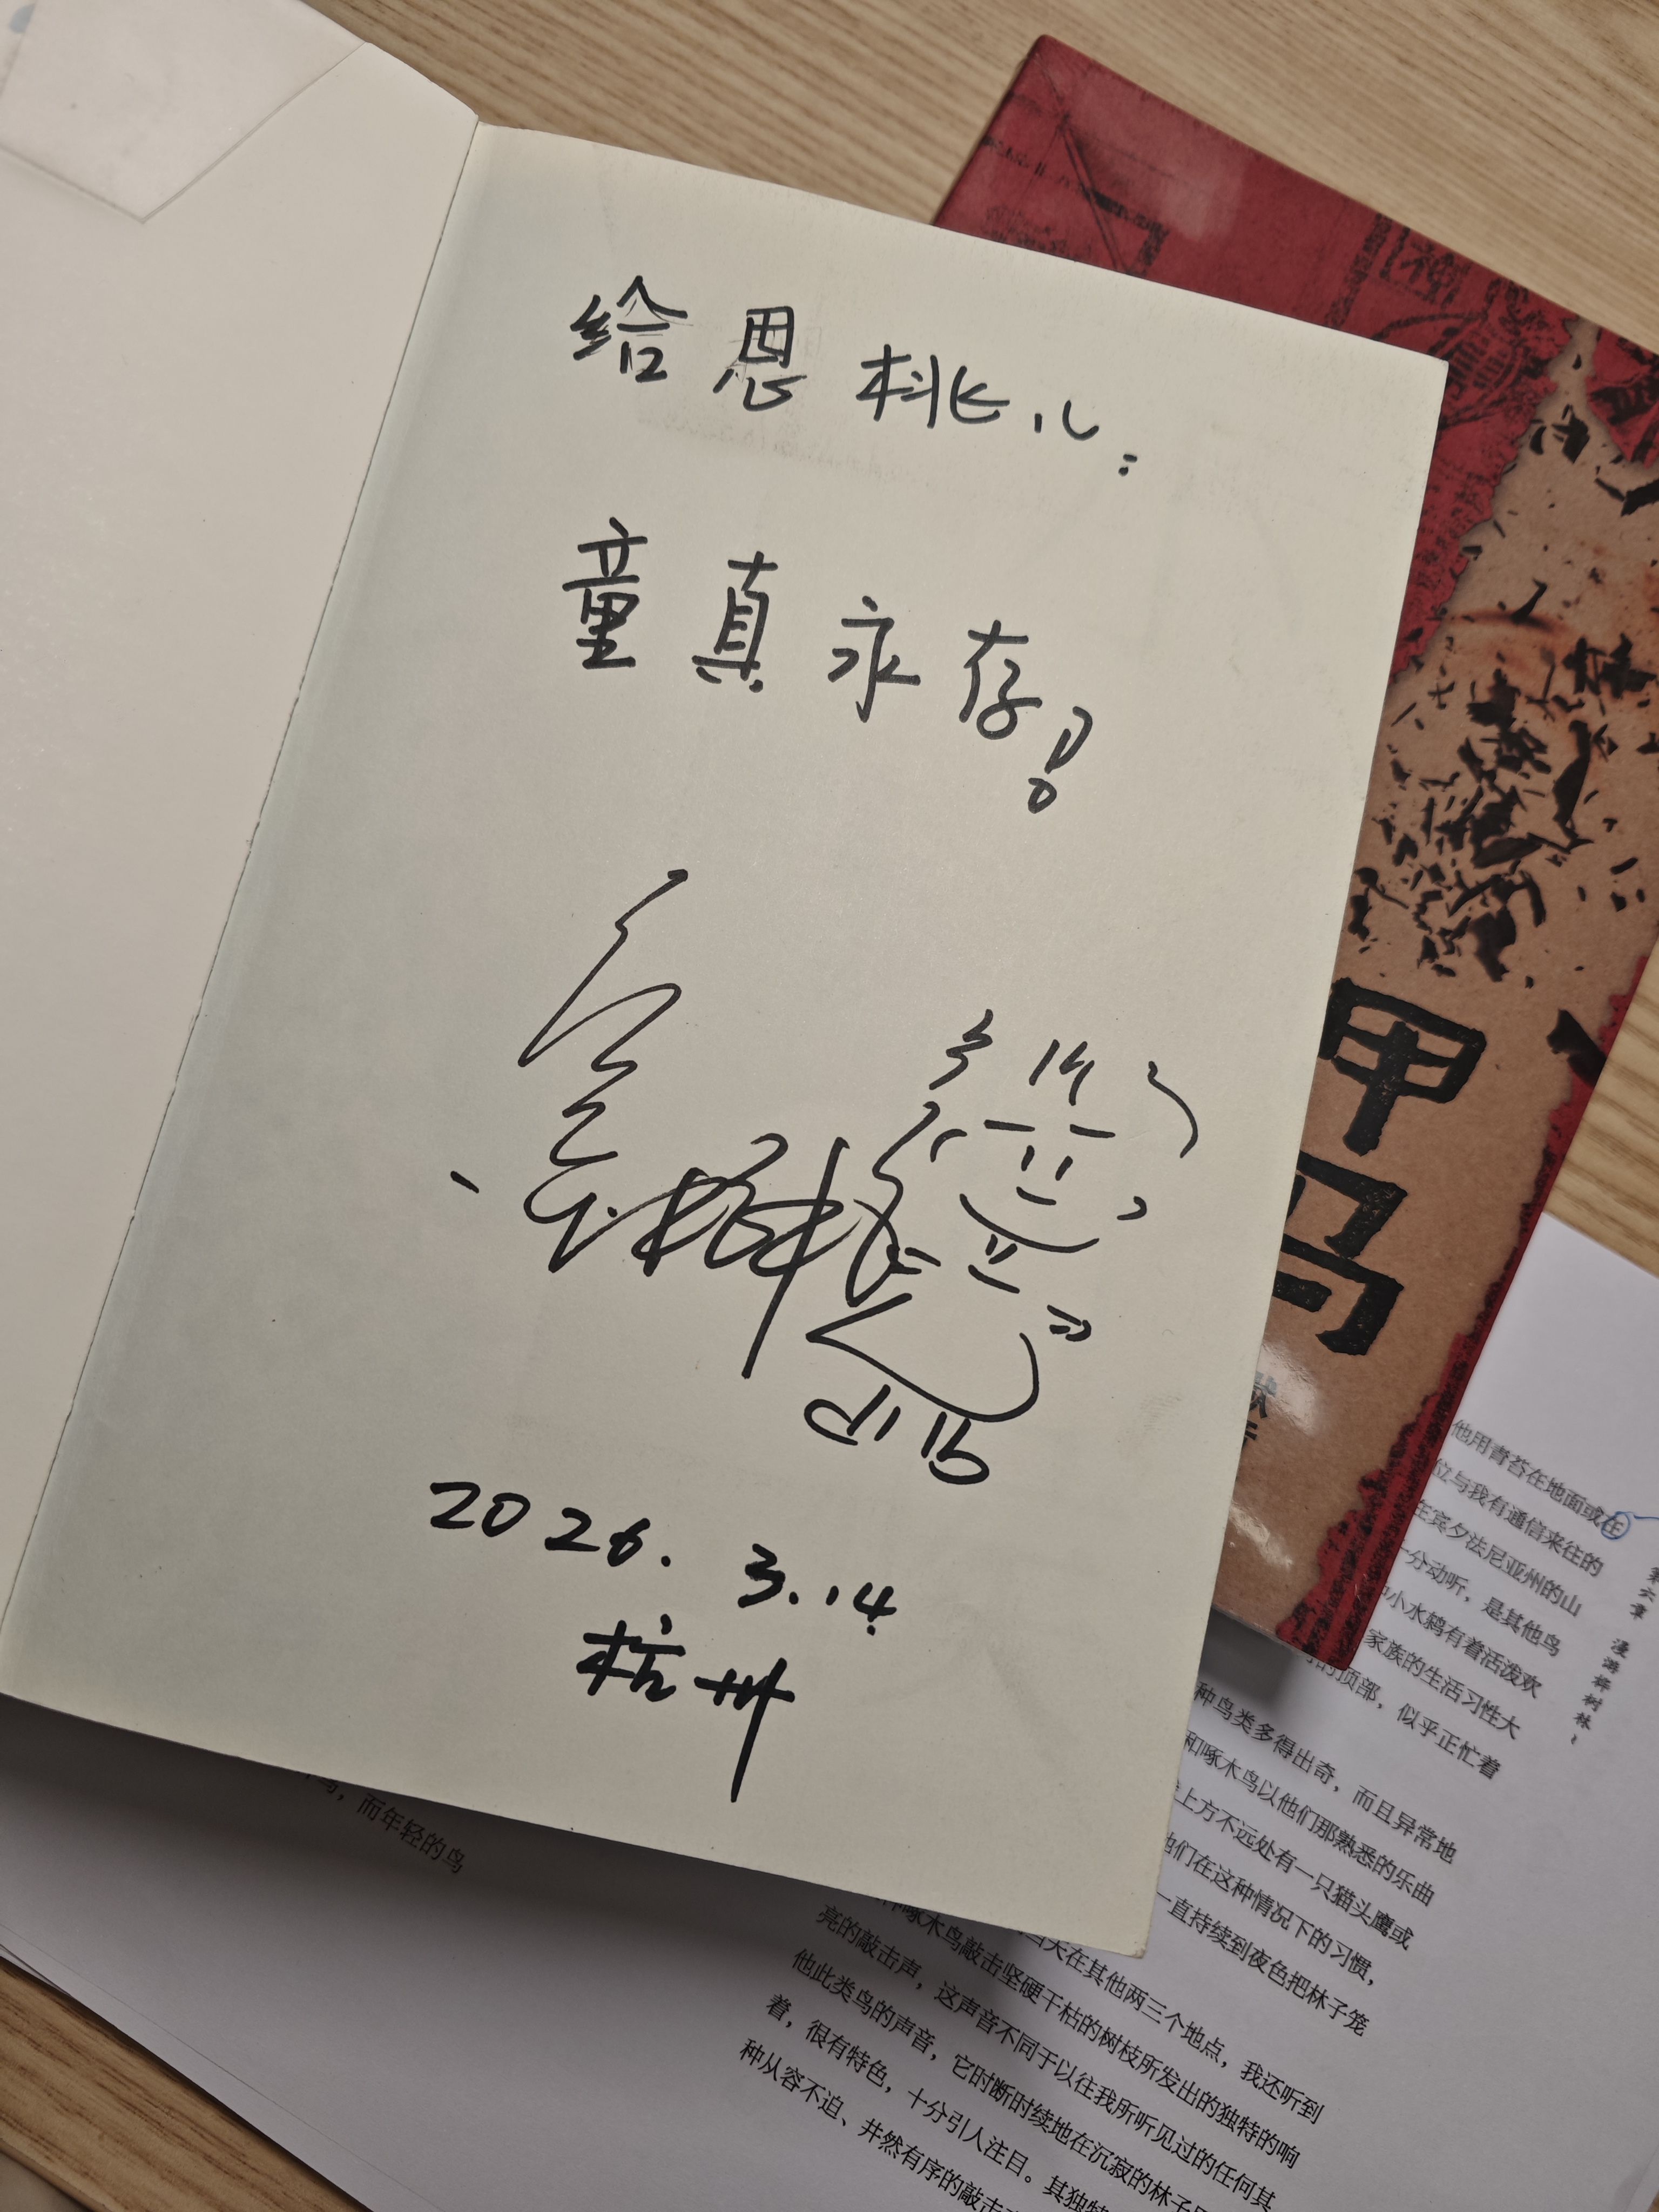 给恩桃儿：
童真永存！
2026.3.14
杭州
甲马
他用青苔在地面或在
位与我有通信来往的
在宾夕法尼亚州的山
十分动听，是其他鸟
小水鸫有着活泼欢
家族的生活习性大
的顶部，似乎正忙着
种鸟类多得出奇，而且异常地
和啄木鸟以他们那熟悉的乐曲
上方不远处有一只猫头鹰或
他们在这种情况下的习惯，
一直持续到夜色把林子笼
天在其他两三个地点，我还听到
啄木鸟敲击坚硬干枯的树枝所发出的独特的响
亮的敲击声，这声音不同于以往我所听见过的任何其
他此类鸟的声音，它时断时续地在沉寂的林子
着，很有特色，十分引人注目。其独特
种从容不迫、井然有序的敲击
第六章 漫游桦树林
鸟，而年轻的鸟